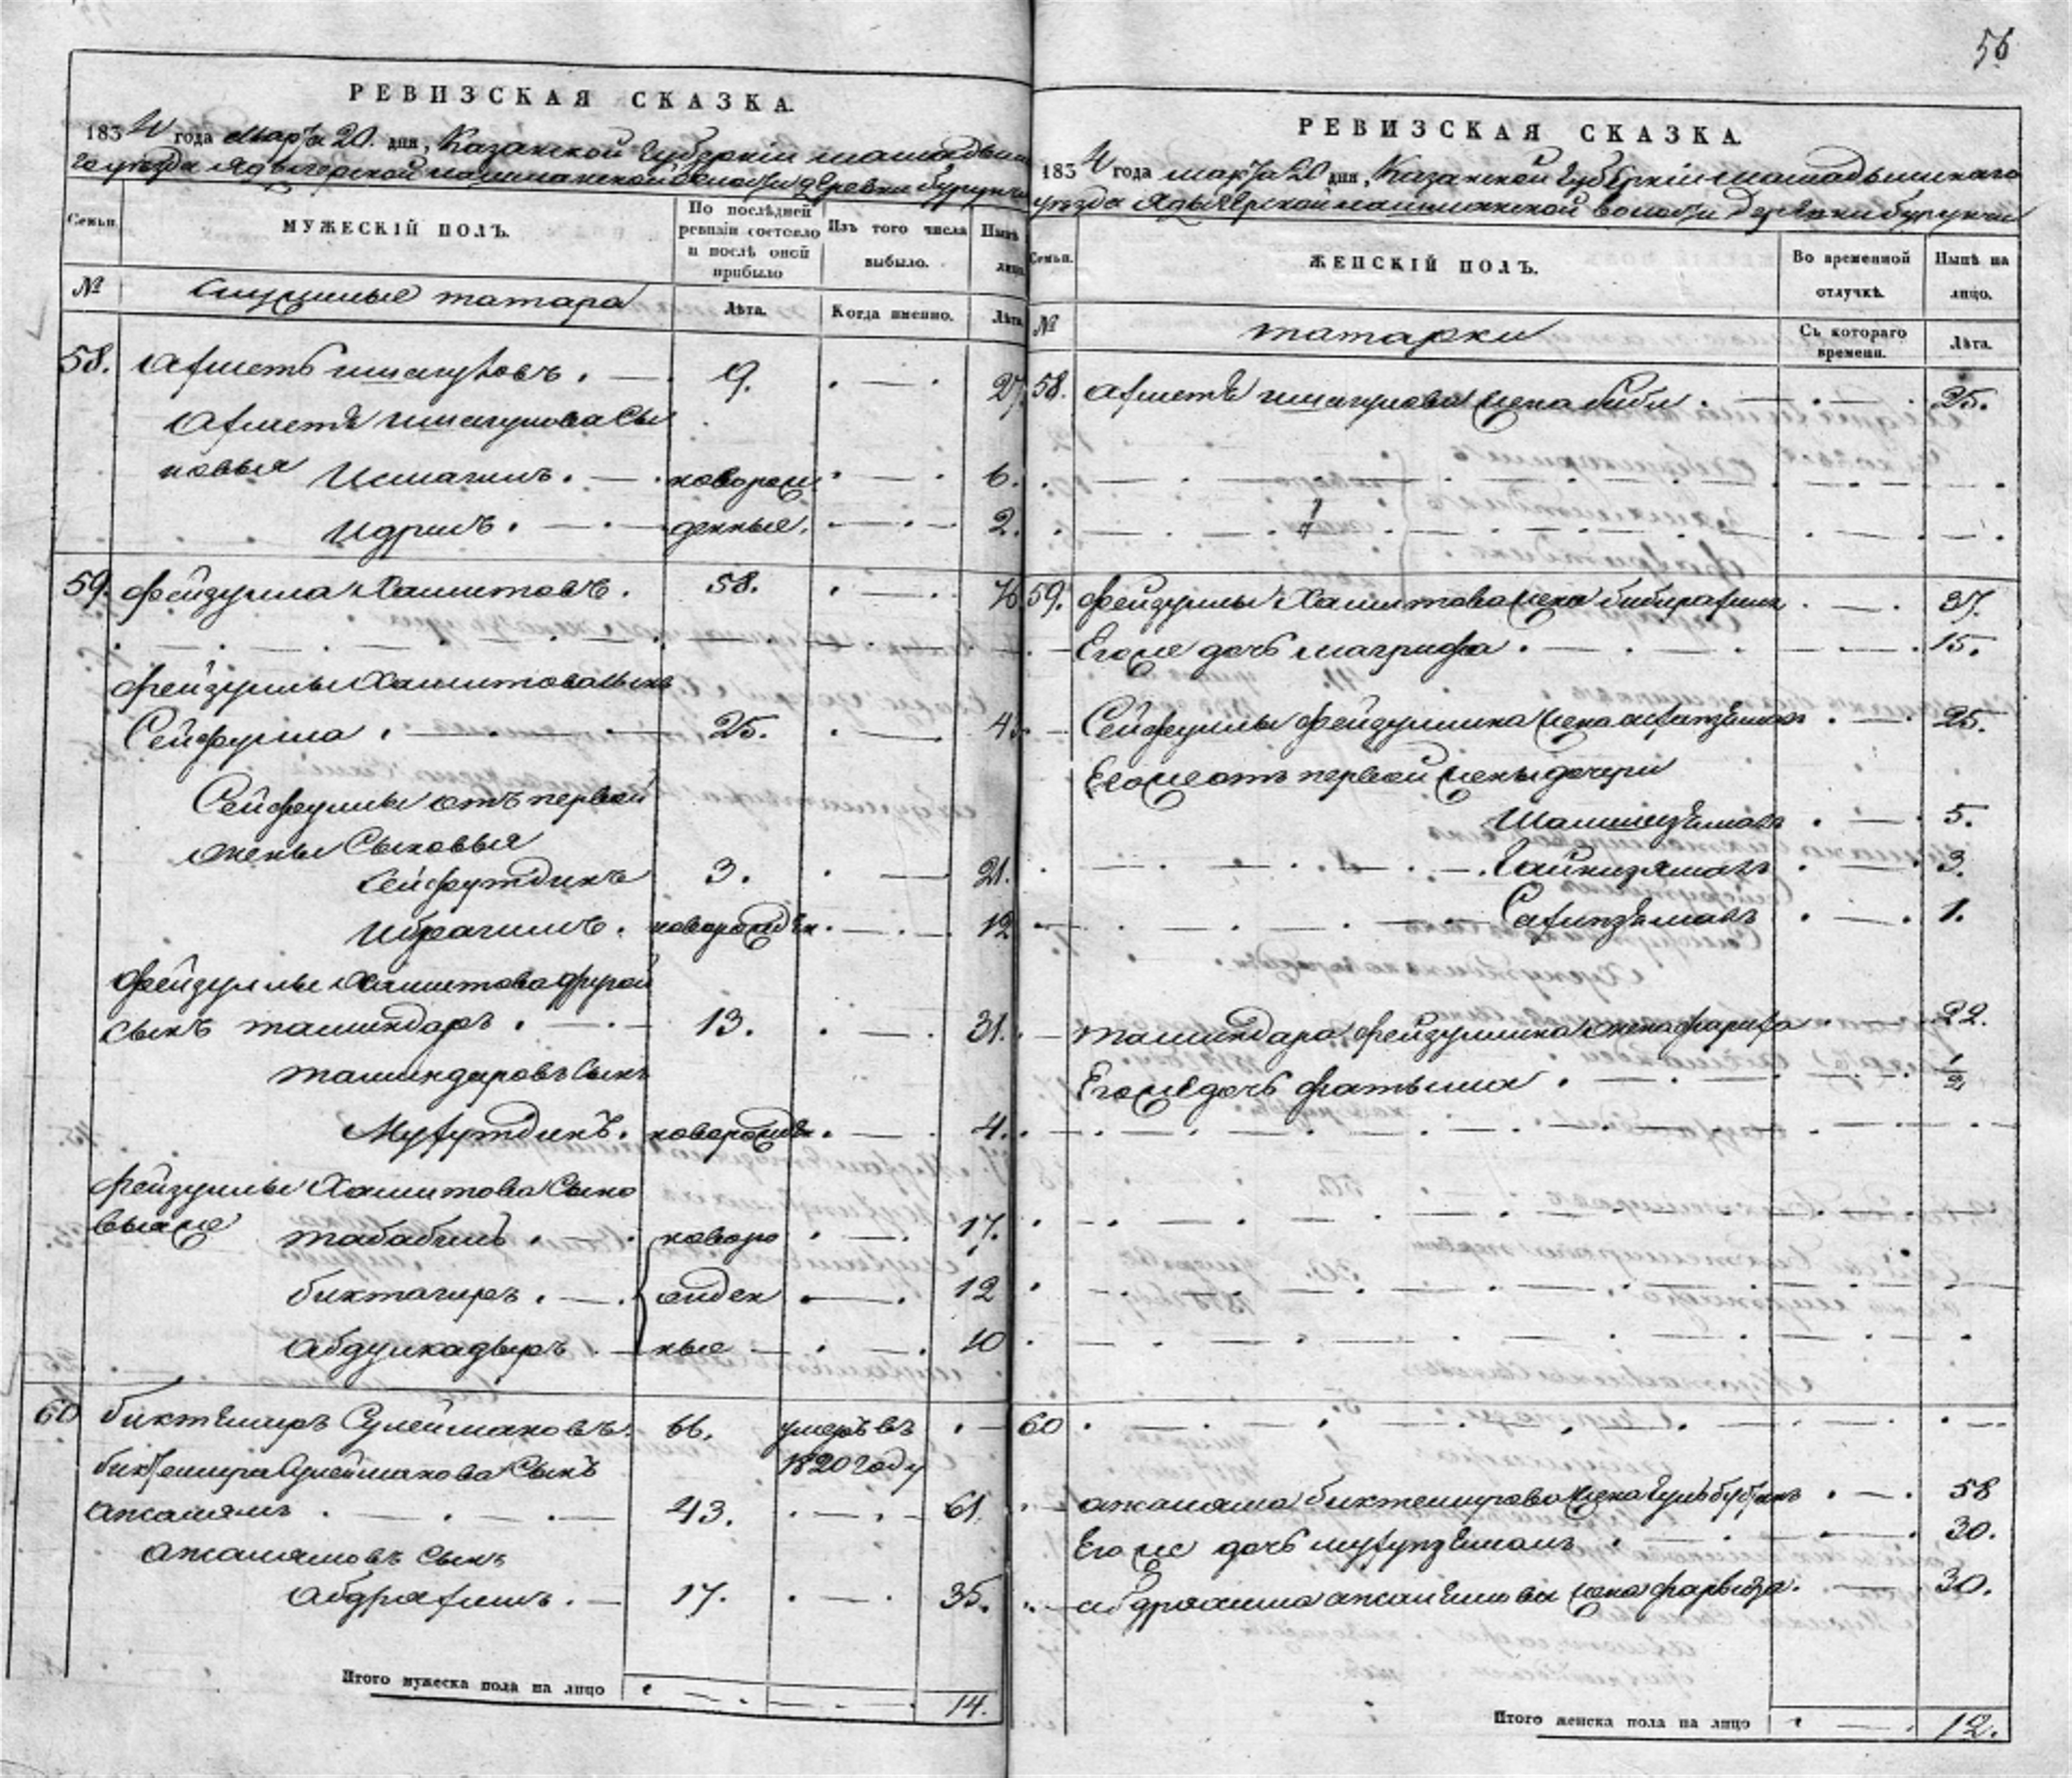 56
РЕВИЗСКАЯ СКАЗКА.
1834 года Марта 20. дня, Казанской Губерніи мамадышска
го уѣзда Ядыгерской волости деревни бурунчи
Семьи.
МУЖЕСКІЙ ПОЛЪ.
По послѣдней ревизіи состояло и послѣ оной прибыло
Изъ того числа выбыло.
Нынѣ лицо
№
служилые татара
Лѣта.
Когда именно.
Лѣта
58. Ахметь ишагуловъ. 9. 27.
Ахметя ишагулова Сы
новья Исмагилъ. новорож 6.
Идрисъ. денные. 2.
59. фейзулла Хамитовъ. 58. 76
фейзуллы Хамитова сынъ
Сейфулла 25. 43
Сейфуллы отъ первой
жены Сыновья
Сейфутдинъ 3. 21.
Ибрагимъ. новорожден 12
фейзуллы Хамитова другой
сынъ ташиндаръ 13. 31.
ташиндаровъ Сынъ
Мухутдинъ. новорожден 4.
фейзуллы Хамитова Сыно
вьяже новоро 17.
биктагиръ. жден 12
Абдулкадыръ ные 10
60 биктемиръ Сулеймановъ. 66. умеръ въ
биктемира Сулейманова Сынъ 1820 году
43. 61.
Сынъ
17. 35.
Итого мужеска пола на лицо 14.
РЕВИЗСКАЯ СКАЗКА.
1834 года марта 20 дня, Казанской Губерніи мамадышскаго
уѣзда Ядыгерской волости деревни бурунчи
Семьи.
ЖЕНСКІЙ ПОЛЪ.
Во временной отлучкѣ.
Нынѣ на лицо.
№
татарки
Съ котораго времени.
Лѣта.
58. Ахметя ишагулова жена биби 25.
59. фейзуллы Хамитова жена 37.
Егоже дочь магрифа 15.
Сейфуллы фейзуллина жена 25.
Егоже отъ первой жены дочери
5.
3.
1.
ташиндара фейзуллина жена 22.
Егоже дочь фатыма 1/2
60
биктемирова жена 58
Егоже дочь 30.
жена 30.
Итого женска пола на лицо 12.